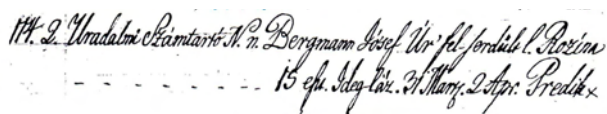 114. 2. Uradalmi Számtartó N. n. Bergmann Jósef Úr' fel-serdült l. Rozina
- - - - - - - - - 15 eszt. Ideg-láz. 31 Márz. 2 Apr. Predik. x